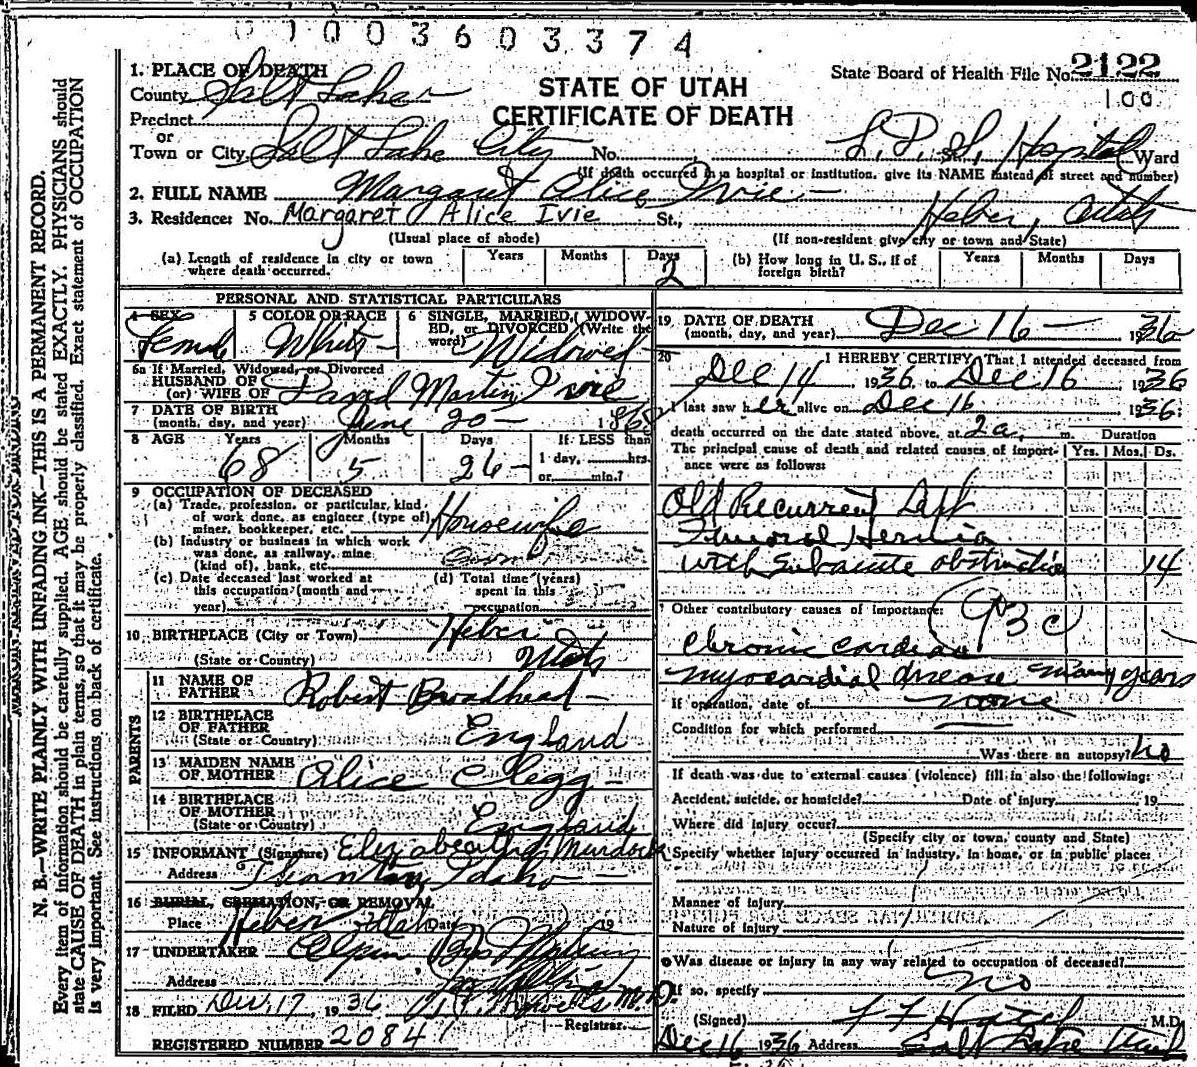 0 1 0 0 3 6 0 3 3 7 4
1. PLACE OF DEATH
County Salt Lake
STATE OF UTAH
CERTIFICATE OF DEATH
State Board of Health File No. 2122
100
Precinct
or
Town or City Salt Lake City No. L. D. S. Hospital Ward
(If death occurred in a hospital or institution, give its NAME instead of street and number)
2. FULL NAME Margaret Alice Ivie
3. Residence: No. Margaret Alice Ivie St., Heber, Utah
(Usual place of abode) (If non-resident give city or town and State)
(a) Length of residence in city or town where death occurred. Years Months Days 2
(b) How long in U. S., if of foreign birth? Years Months Days
PERSONAL AND STATISTICAL PARTICULARS
4 SEX Female
5 COLOR OR RACE White
6 SINGLE, MARRIED, WIDOWED, or DIVORCED (Write the word) Widowed
6a If Married, Widowed, or Divorced
HUSBAND OF
(or) WIFE OF David Martin Ivie
7 DATE OF BIRTH
(month, day, and year) June 20 - 1868
8 AGE Years 68 Months 5 Days 26 If LESS than 1 day, hrs. or min.?
9 OCCUPATION OF DECEASED
(a) Trade, profession, or particular, kind of work done, as engineer (type of) miner, bookkeeper, etc. Housewife
(b) Industry or business in which work was done, as railway, mine (kind of), bank, etc.
(c) Date deceased last worked at this occupation (month and year)
(d) Total time (years) spent in this occupation
10 BIRTHPLACE (City or Town) Heber
(State or Country) Utah
PARENTS
11 NAME OF FATHER Robert Broadhead
12 BIRTHPLACE OF FATHER (State or Country) England
13 MAIDEN NAME OF MOTHER Alice Clegg
14 BIRTHPLACE OF MOTHER (State or Country) England
15 INFORMANT (Signature) Murdock
Address Idaho
16 BURIAL, CREMATION, OR REMOVAL
Place Heber Utah Date 19
17 UNDERTAKER
Address
18 FILED Dec. 17, 1936 M.D.
Registrar.
REGISTERED NUMBER 20841
19 DATE OF DEATH
(month, day, and year) Dec 16 - 1936
20 I HEREBY CERTIFY, That I attended deceased from
Dec 14, 1936, to Dec 16 1936
I last saw her alive on Dec 16 1936;
death occurred on the date stated above, at 2 a. m. Duration
The principal cause of death and related causes of importance were as follows: Yrs. Mos. Ds.
Old Recurrent Left
Femoral Hernia
with Subacute obstruction 14
Other contributory causes of importance:
Chronic cardiac
myocardial disease many years
If operation, date of none
Condition for which performed
Was there an autopsy? No
If death was due to external causes (violence) fill in also the following:
Accident, suicide, or homicide? Date of injury 19
Where did injury occur?
(Specify city or town, county and State)
Specify whether injury occurred in industry, in home, or in public place:
Manner of injury
Nature of injury
Was disease or injury in any way related to occupation of deceased?
If so, specify no
(Signed) M.D.
Dec 16 1936 Address Salt Lake
N. B.—WRITE PLAINLY WITH UNFADING INK—THIS IS A PERMANENT RECORD.
Every item of information should be carefully supplied. AGE should be stated EXACTLY. PHYSICIANS should
state CAUSE OF DEATH in plain terms, so that it may be properly classified. Exact statement of OCCUPATION
is very important. See instructions on back of certificate.